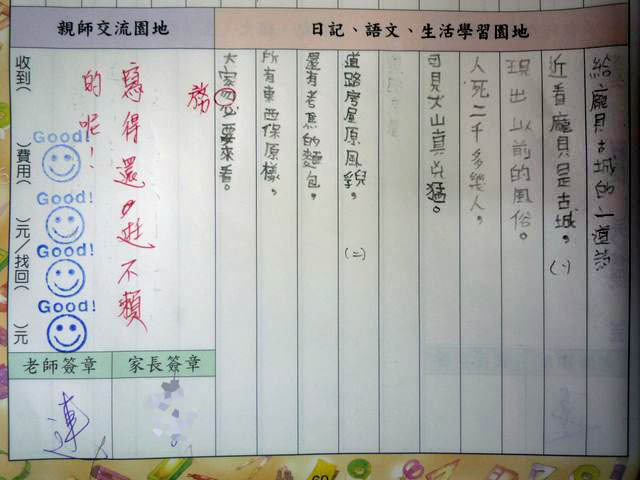 日記、語文、生活學習園地
給龐貝古城的一首詩
近看龐貝是古城，(一)
現出以前的風俗。
人死二千多幾人，
可見火山真兇猛。
道路房屋原風貌，(二)
還有考焦的麵包，
所有東西保原樣，
大家必要來看。
務
親師交流園地
寫得還真不賴
的呢！
收到( )費用( )元/找回( )元
Good!
Good!
Good!
Good!
老師簽章
家長簽章
連